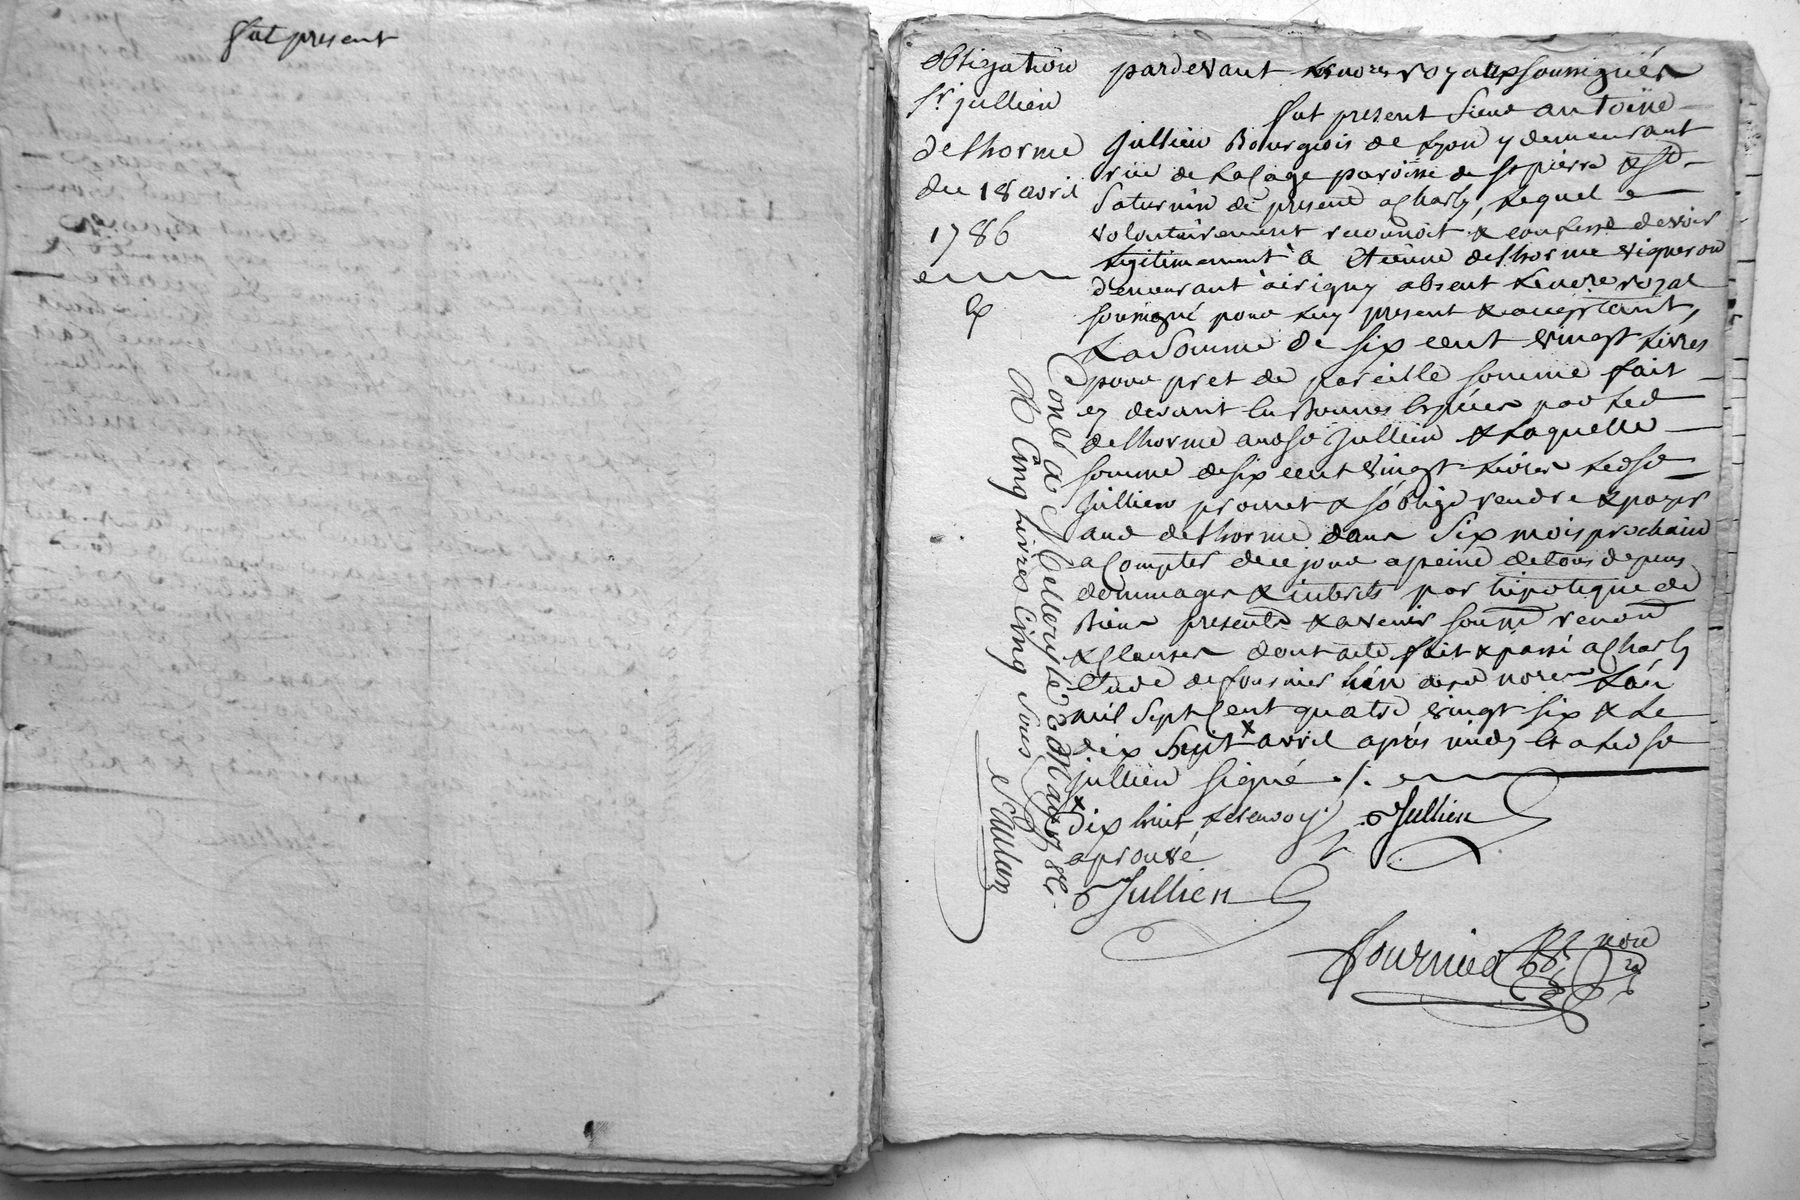 fut present
obligation
sr jullien
delhorme
du 18 avril
1786
pardevant les nores royaux soussignés
fut present sieur antoine
jullien Bourgeois de Lyon y demeurant
rüe de La Cage paroisse de st pierre & st
Saturnin de present a Charly, Lequel
volontairement reconnoit & confesse devoir
Legitimement à etienne delhorme vigneron
demeurant à irigny absent Le nore royal
soussigné pour Luy present & acceptant,
La Somme de six cent vingt Livres
pour pret de pareille somme fait
cy devant en bonnes especes par Led
delhorme aud sr Jullien & Laquelle
somme de six cent vingt Livres Led sr
Jullien promet & s'oblige rendre & payer
aud delhorme dans Six mois prochain
a Compter de ce jour a peine de tous depens
dommages & interets par hipoteque de
Biens presents & a venir soum renon
& Clauses dont acte fait & passé a Charly
Etude de fournier L'un desd nores L'an
mil Sept Cent quatre vingt six & Le
dix Sept x avril après midy Et a Led sr
jullien signé ./.
x dix huit Le renvoy
aprouvé
Jullien
Jullien
Fournier nore
Conlé a St Millery le 2 May 1786
R Cinq Livres Cinq sous